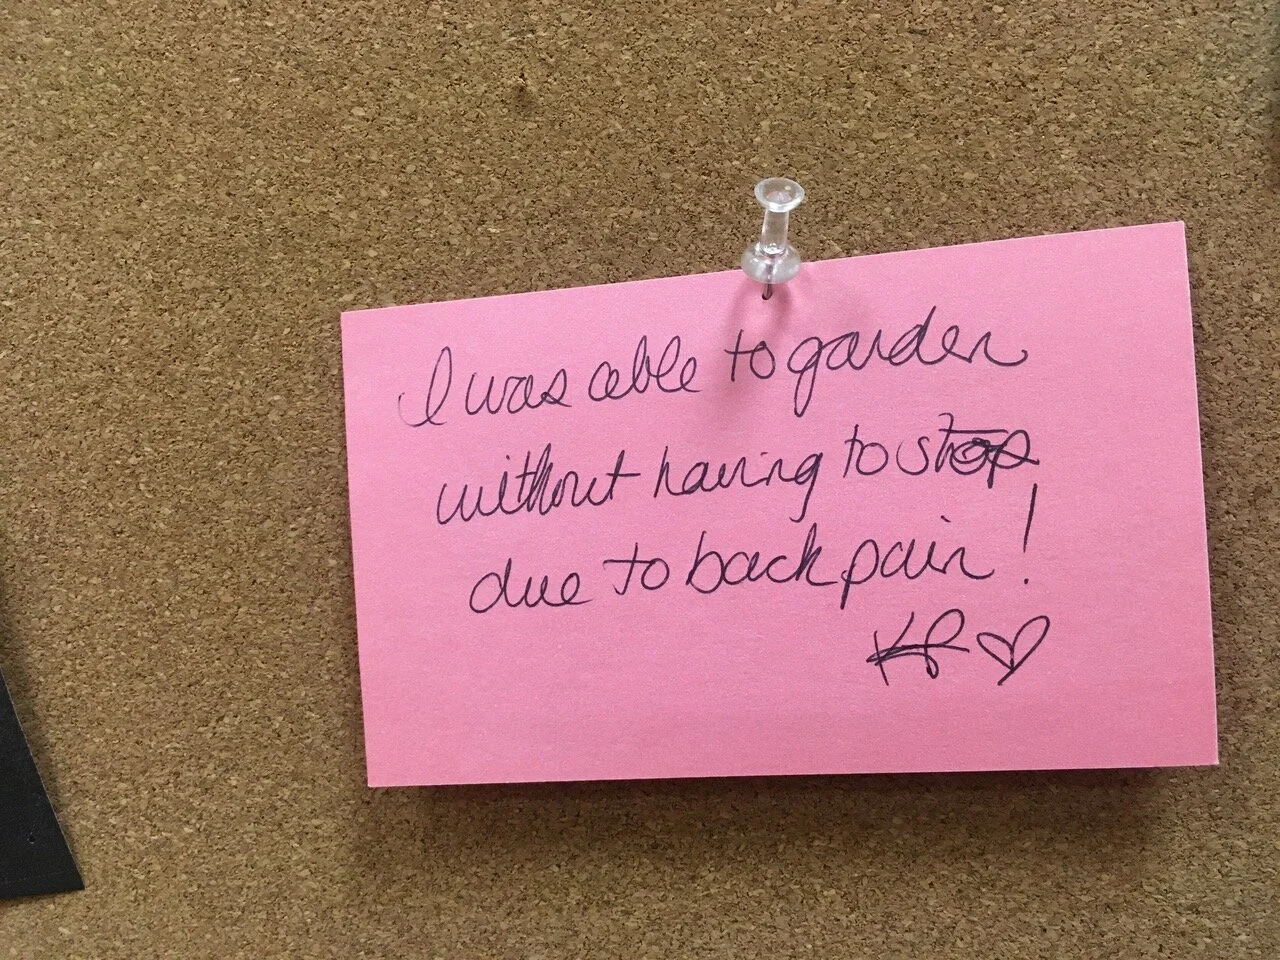 I was able to garden
without having to stop
due to back pain!
KP ♡